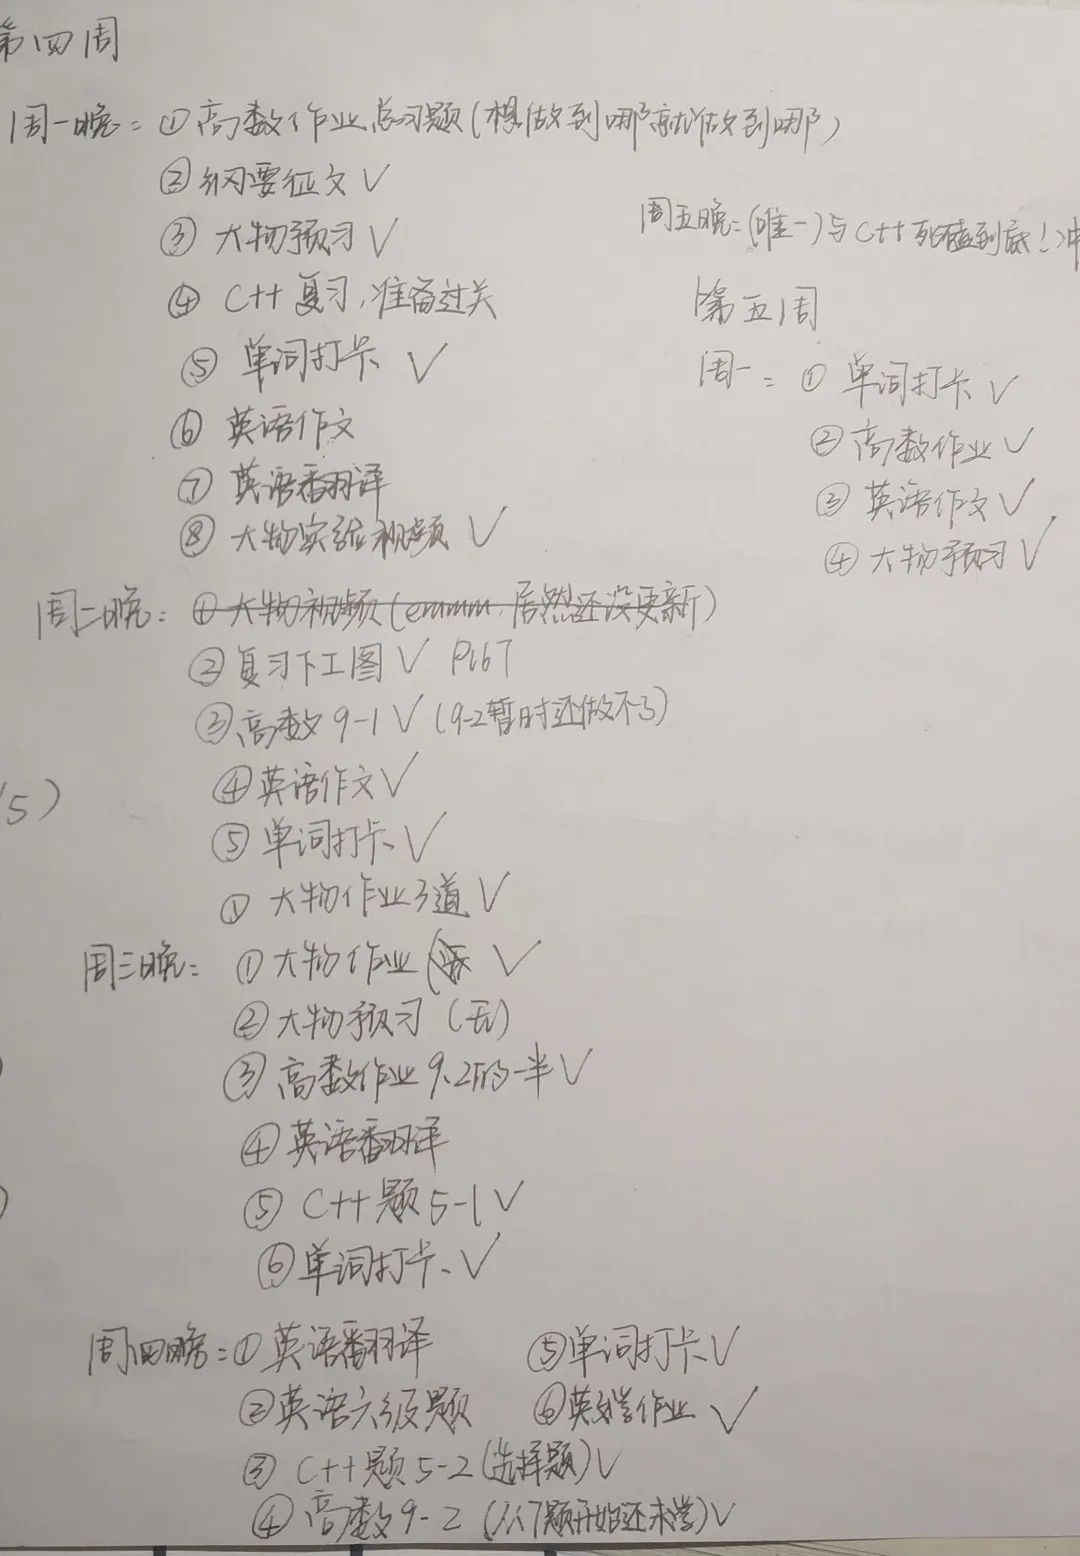 第四周
周一晚：① 高数作业总习题(想做到哪就做到哪)
② 纲要征文 ✓
③ 大物预习 ✓
④ C++复习,准备过关
⑤ 单词打卡 ✓
⑥ 英语作文
⑦ 英语翻译
⑧ 大物实验视频 ✓
周二晚：① 大物视频(emmm,居然还没更新)
② 复习下工图 ✓ P167
③ 高数9-1 ✓ (9-2暂时还做不了)
④ 英语作文 ✓
⑤ 单词打卡 ✓
① 大物作业3道 ✓
周三晚：① 大物作业 ✓
② 大物预习 (无)
③ 高数作业9.2的一半 ✓
④ 英语翻译
⑤ C++题5-1 ✓
⑥ 单词打卡 ✓
周四晚：① 英语翻译
② 英语六级题
③ C++题5-2(选择题) ✓
④ 高数9-2 (从7题开始还未学) ✓
⑤ 单词打卡 ✓
⑥ 作业 ✓
周五晚：(唯一)与C++死磕到底!冲
第五周
周一：① 单词打卡 ✓
② 高数作业 ✓
③ 英语作文 ✓
④ 大物预习 ✓
5)